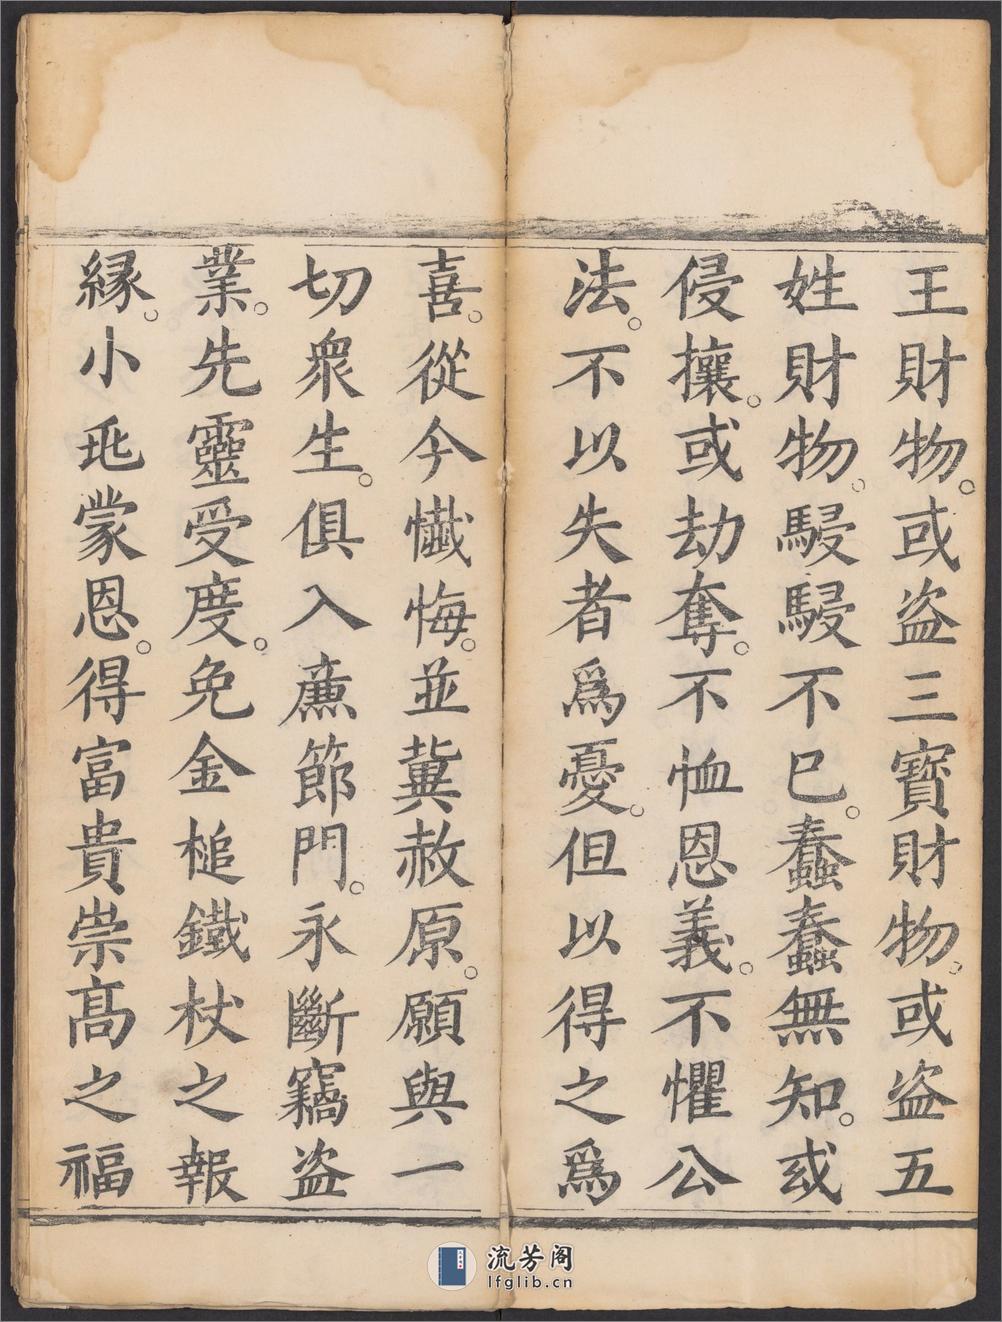 王財物。或盗三寶財物。或盗五
姓財物。駸駸不已。蠢蠢無知。或
侵攘。或劫奪。不恤恩義。不懼公
法。不以失者爲憂。但以得之爲
喜。從今懺悔。並兾赦原。願與一
切衆生。俱入廉節門。永斷竊盗
業。先靈受度。免金槌鐵杖之報
縁。小兆蒙恩。得富貴崇髙之福
流芳阁
lfglib.cn